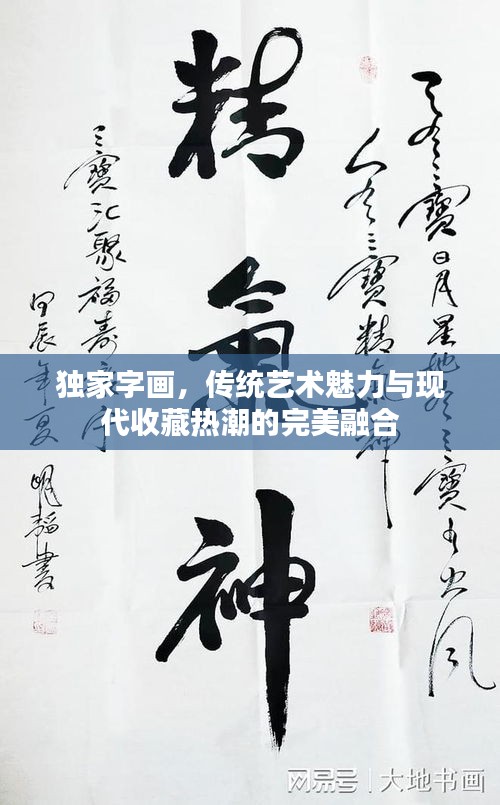 天有三寶日月星地有三寶水火风
人有三寶精氣神
精氣神
三寶汇聚福寿
甲辰年夏 明韬書
独家字画，传统艺术魅力与现
代收藏热潮的完美融合
网易号 | 大地书画